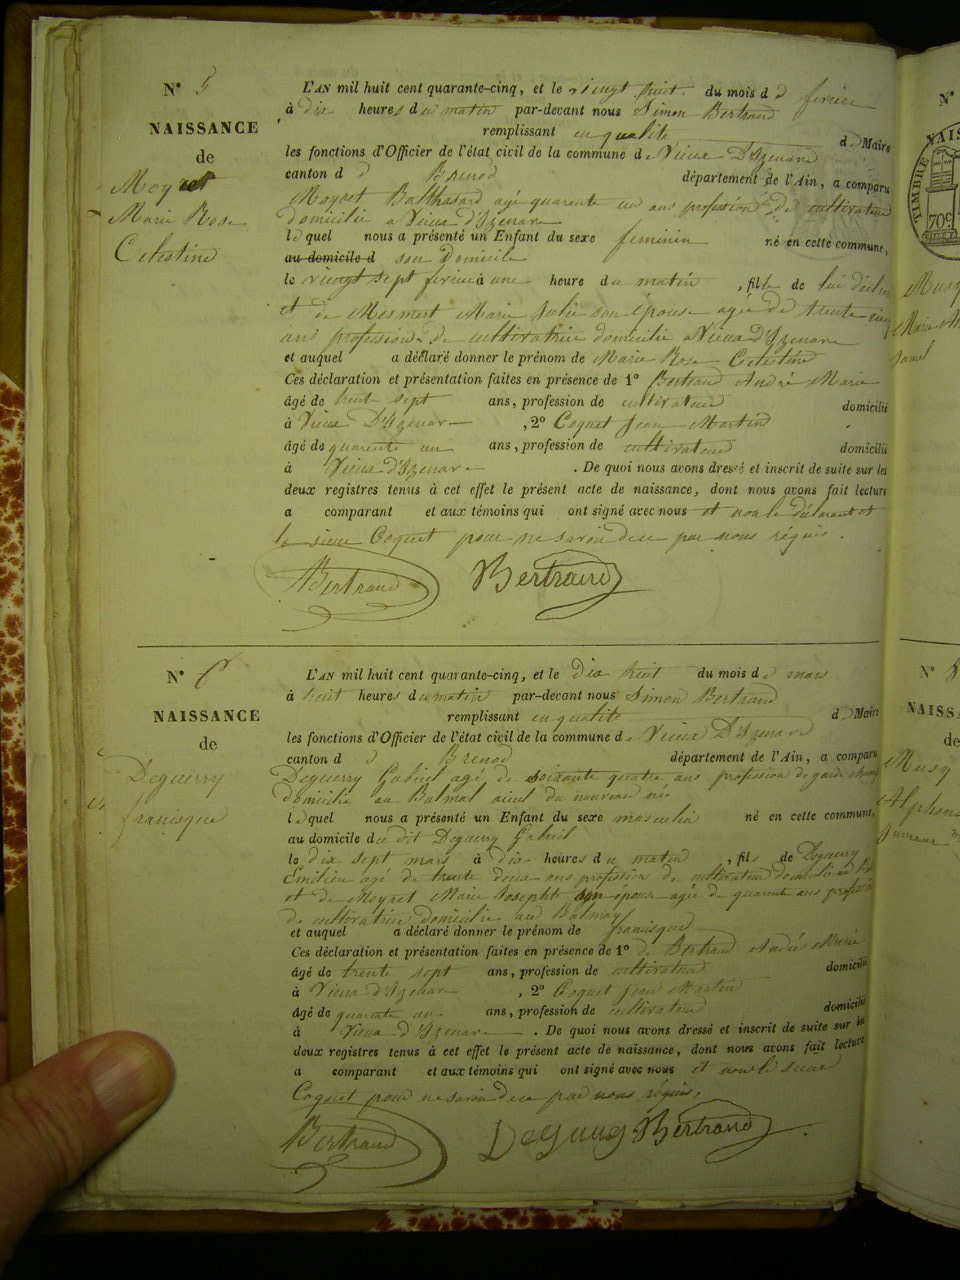 N° 5
NAISSANCE
de
Moyret
Marie Rose
Celestine
L'AN mil huit cent quarante-cinq, et le vingt huit du mois d e fevrier
à dix heures du matin par-devant nous Simon Bertrand
remplissant en qualité de Maire
les fonctions d'Officier de l'état civil de la commune de Vieux D'Izenave
canton d e Brenod département de l'Ain, a comparu
Moyret Balthasard agé quarente un ans profession de cultivateur
domicilié a Vieux d'Izenave
lequel nous a présenté un Enfant du sexe feminin né en cette commune,
au domicile d son Domicile
le vingt sept fevrier à une heure du matin, fille de lui déclarant
et de Mesmert Marie Julie son épouse agée de trente cinq
ans profession de cultivatrice domicilie a Vieux d'Izenave
et auquel a déclaré donner le prénom de Marie Rose Celestine
Ces déclaration et présentation faites en présence de 1° Bertrand André Marie
âgé de trente sept ans, profession de cultivateur domicilié
à Vieux D'Izenave, 2° Coquet Jean Martin
âgé de quarente un ans, profession de cultivateur domicilié
à Vieux d'Izenave. De quoi nous avons dressé et inscrit de suite sur les
deux registres tenus à cet effet le présent acte de naissance, dont nous avons fait lecture
a comparant et aux témoins qui ont signé avec nous et non le déclarant et
le sieur Coquet pour ne savoir de ce par nous réquis.
Bertrand Bertrand
N° 6
NAISSANCE
de
Deguerry
francisque
L'AN mil huit cent quarante-cinq, et le dix huit du mois d e mars
à huit heures du matin par-devant nous Simon Bertrand
remplissant en qualité de Maire
les fonctions d'Officier de l'état civil de la commune de Vieux D'Izenave
canton d e Brenod département de l'Ain, a comparu
Deguerry Gabriel agé de soixante quatre ans profession de garde
domicilié au Balmay aieul du nouveau né
lequel nous a présenté un Enfant du sexe masculin né en cette commune,
au domicile du dit Deguerry Gabriel
le dix sept mars à dix heures du matin, fils de Deguerry
Emilien agé de trente deux ans profession de cultivateur domicilié au
et de Moyret Marie Josephte son épouse agée de quarente ans profession
de cultivatrice domicilie au Balmay
et auquel a déclaré donner le prénom de francisque
Ces déclaration et présentation faites en présence de 1° de Bertrand André Marie
âgé de trente sept ans, profession de cultivateur domicilié
à Vieux d'Izenave, 2° Coquet Jean Martin
âgé de quarente un ans, profession de cultivateur domicilié
à Vieux d'Izenave. De quoi nous avons dressé et inscrit de suite sur les
deux registres tenus à cet effet le présent acte de naissance, dont nous avons fait lecture
a comparant et aux témoins qui ont signé avec nous et non le sieur
Coquet pour ne savoir de ce par nous réquis.
Bertrand Bertrand
N°
TIMBRE
70c
N° 8
NAISSA
de
Musy
Alphons